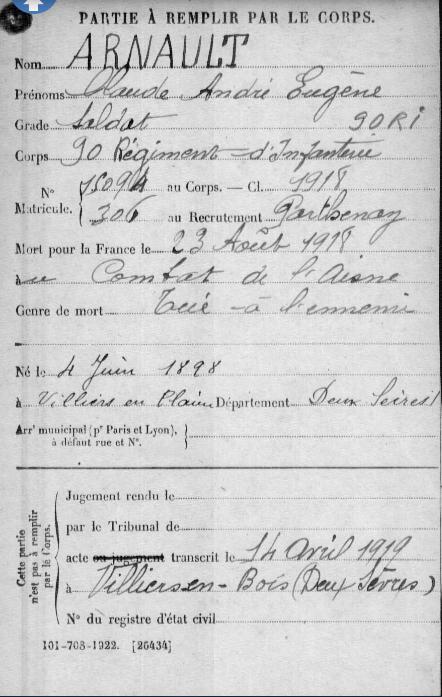 PARTIE À REMPLIR PAR LE CORPS.
Nom ARNAULT
Prénoms Claude André Eugène
Grade Soldat 90 RI
Corps 90 Régiment d'Infanterie
N° Matricule. { 15094 au Corps. — Cl. 1918
306 au Recrutement Parthenay
Mort pour la France le 23 Août 1918
à au Combat de l'Aisne
Genre de mort Tué à l'ennemi
Né le 4 Juin 1898
à Villiers en Plaine Département Deux Sèvres
Arr' municipal (pr Paris et Lyon), à défaut rue et N°. }
Cette partie n'est pas à remplir par le Corps. {
Jugement rendu le
par le Tribunal de
acte ou jugement transcrit le 14 Avril 1919
à Villiers en - Bois (Deux Sèvres)
N° du registre d'état civil
101-708-1922. [26434]